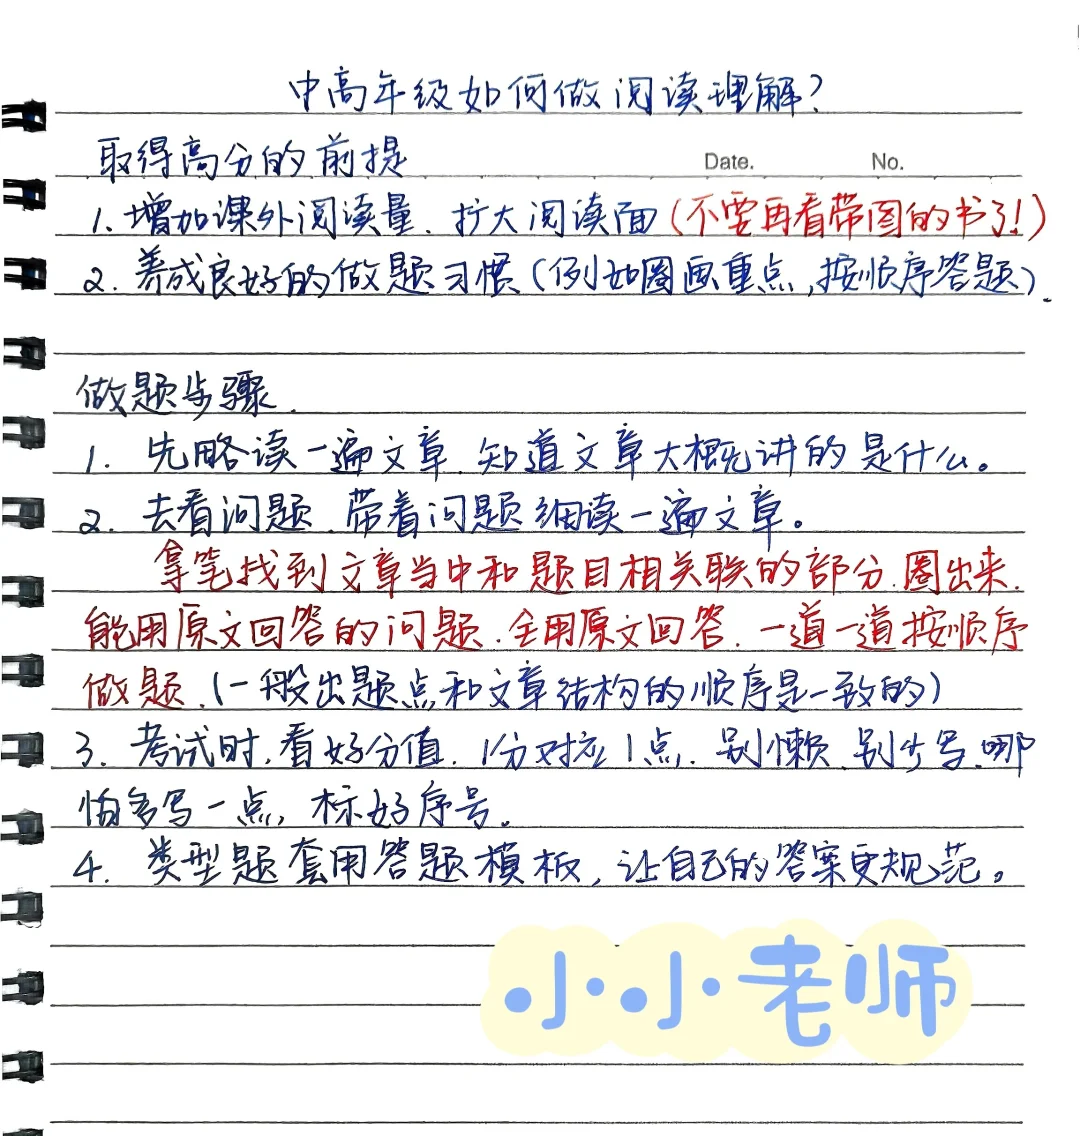 中高年级如何做阅读理解?
取得高分的前提
Date. No.
1.增加课外阅读量.扩大阅读面(不要再看带图的书了!)
2.养成良好的做题习惯(例如圈画重点,按顺序答题).
做题步骤.
1.先略读一遍文章.知道文章大概讲的是什么。
2.去看问题.带着问题细读一遍文章。
拿笔找到文章当中和题目相关联的部分.圈出来.
能用原文回答的问题.全用原文回答.一道一道按顺序
做题.(一般出题点和文章结构的顺序是一致的)
3.考试时,看好分值.1分对应1点.别懒.别少写.哪
怕多写一点,标好序号。
4.类型题套用答题模板,让自己的答案更规范。
小小老师